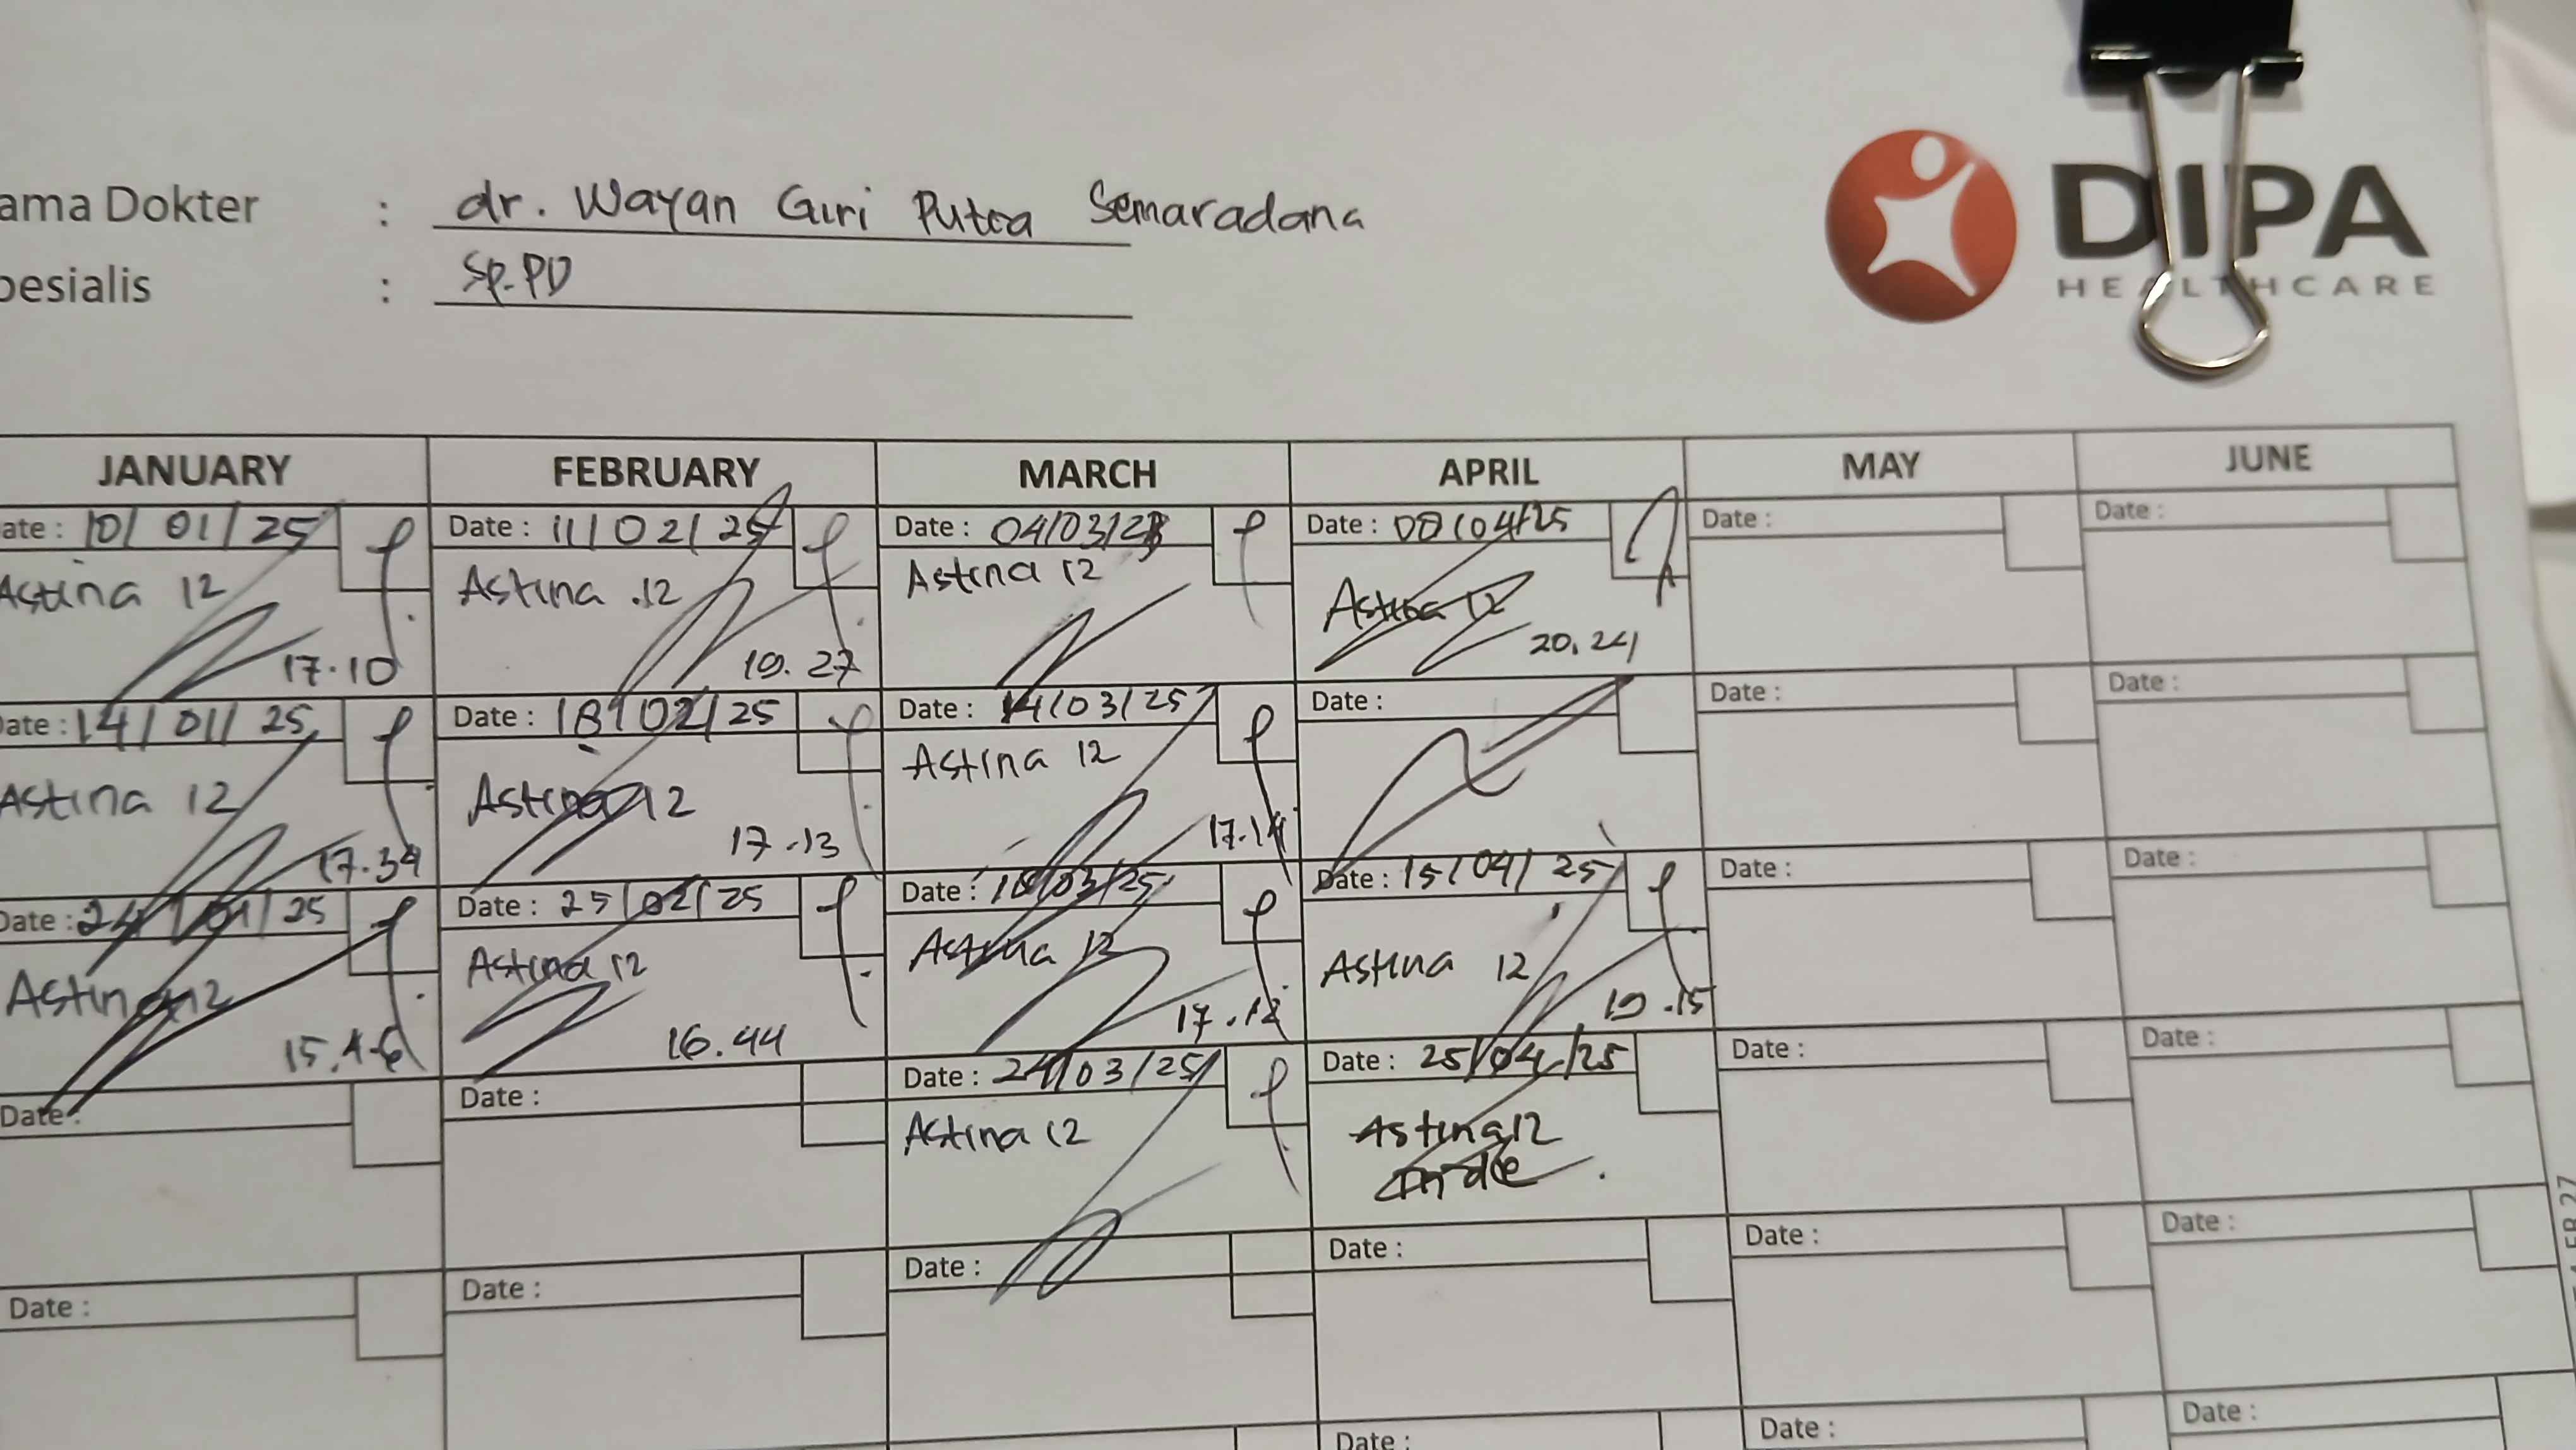 ama Dokter : dr. Wayan Giri Putra Semaradana
pesialis : Sp.PD
DIPA
HEALTHCARE
JANUARY FEBRUARY MARCH APRIL MAY JUNE
ate : 10/ 01/ 25
Astina 12
17.10
Date : 11/ 02/ 25
Astina .12
19.27
Date : 04/03/25
Astina 12
Date : 08/04/25
Astina 12
20.24
Date :
Date :
ate : 14/ 01/ 25
Astina 12
17.34
Date : 18/02/25
Astina 12
17.13
Date : 14/03/25
Astina 12
17.14
Date :
Date :
Date :
Date : 24/01/25
Astina 12
15.46
Date : 25/02/25
Astina 12
16.44
Date : 18/03/25
Astina 12
17.12
Date : 15/04/25
Astina 12
19.15
Date :
Date :
Date :
Date :
Date : 24/03/25
Astina 12
Date : 25/04/25
Astina 12
Date :
Date :
Date :
Date :
Date :
Date :
Date :
Date :
Date :
Date :
Date :